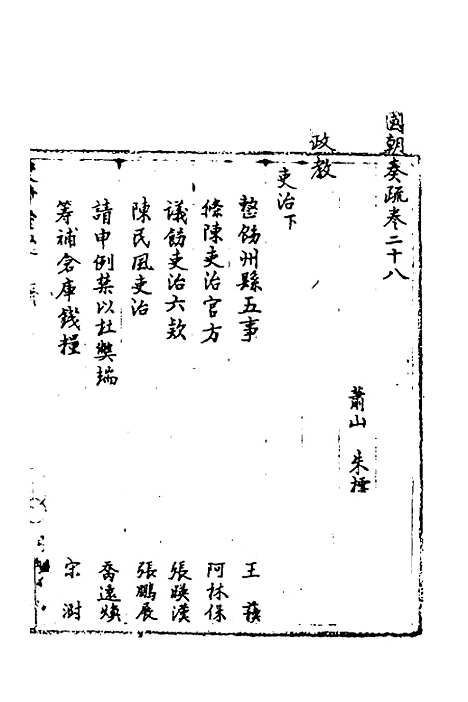 國朝奏疏卷二十八
蕭山 朱
政教
吏治下
整飭州縣五事 王
條陳吏治官方 阿林保
議飭吏治六款 張映漢
陳民風吏治 張鵬展
請申例禁以杜弊端 喬遠煐
籌補倉庫錢糧 宋澍